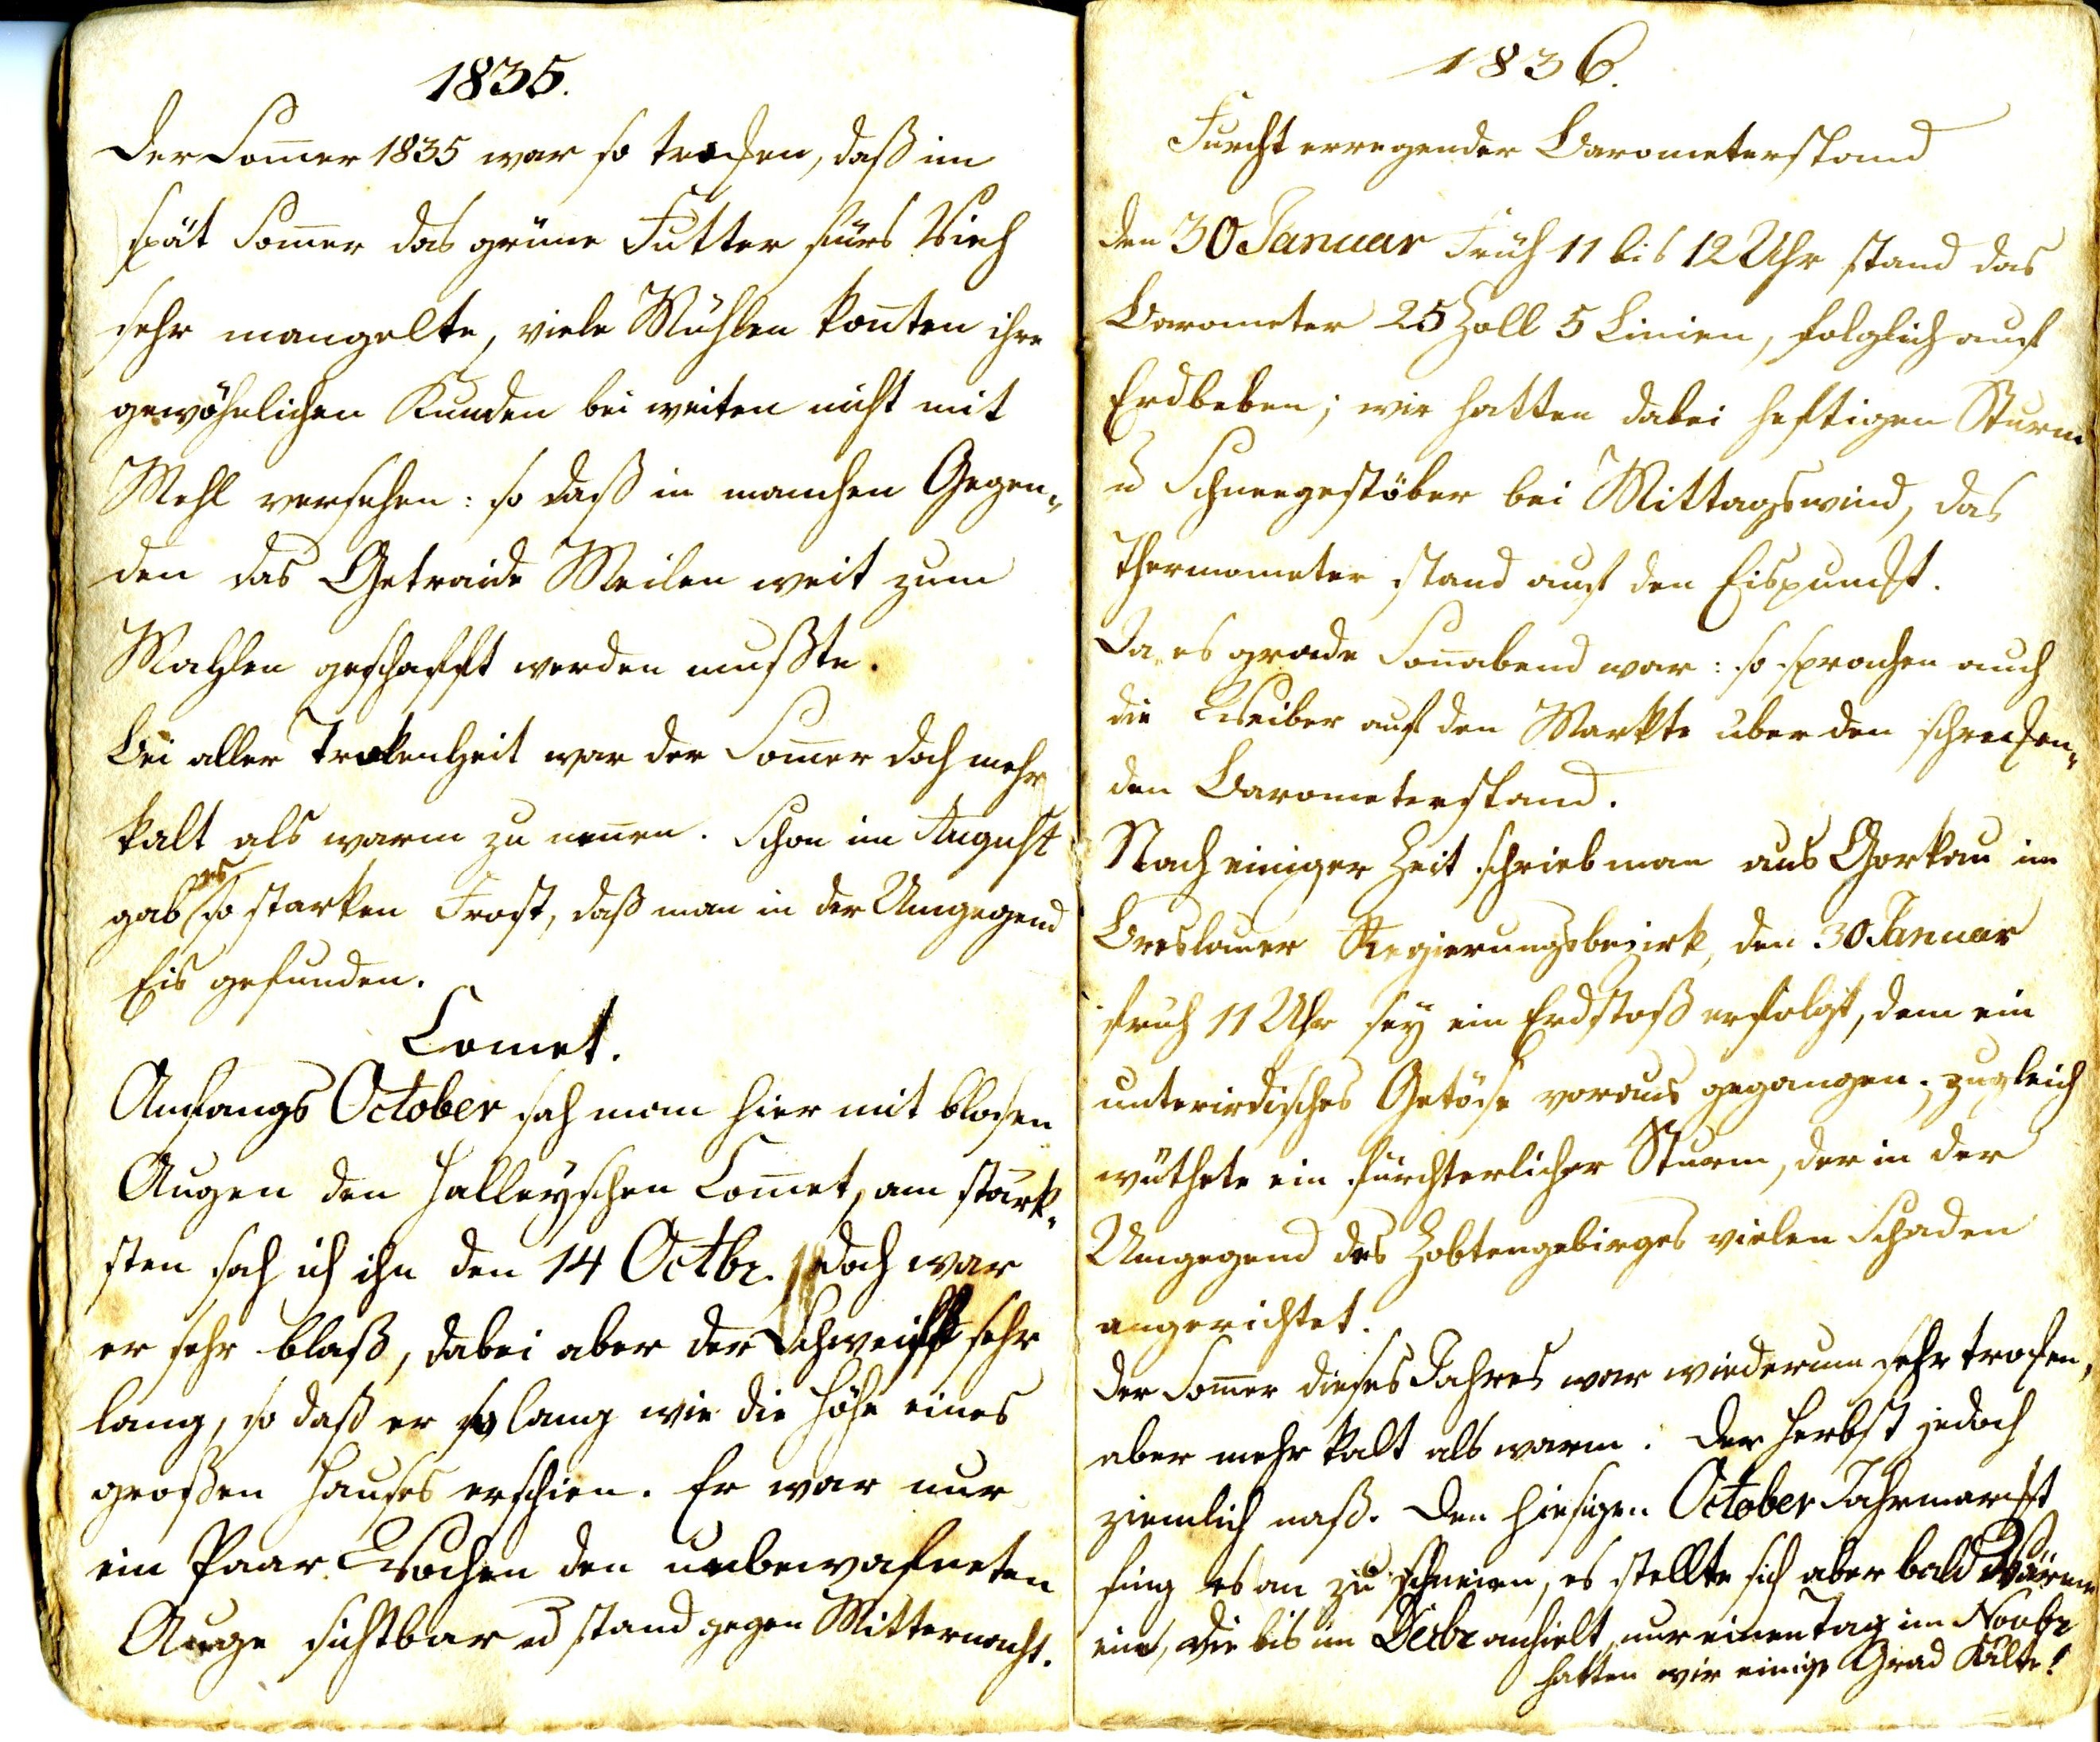 1835.
Der Som̄er 1835 war so trocken, daß im
spät Som̄er das grüne Futter fürs Vieh
sehr mangelte, viele Mühlen kon̄ten ihre
gewöhnlichen Kunden bei weiten nicht mit
Mehl versehen: so daß in manchen Gegen„
den das Getraide Meilen weit zum
Mahlen geschafft werden mußte.
Bei aller Trokenheit war der Som̄er doch mehr
kalt als warm zu nen̄en. Schon im August
gab es so starken Frost, daß man in der Umgegend
Eis gefunden.
Comet.
Anfangs October sah man hier mit blosen
Augen den Halleyschen Com̄et, am stärk„
sten sah ich ihn den 14 Octbr. doch war
er sehr blaß, dabei aber der Schweif sehr
lang, so daß er so lang wie die Höhe eines
großen Hauses erschien. Er war nur
ein Paar Wochen den unbewafneten
Auge sichtbar u stand gegen Mitternacht.
1836.
Furcht erregender Barometerstand
den 30 Januar Früh 11 bis 12 Uhr stand das
Barometer 25 Zoll 5 Linien, folglich auf
Erdbeben; wir hatten dabei heftigen Sturm
u Schneegestöber bei Mittagswind, das
Thermometer stand auf den Eispunckt.
Da es grade Son̄abend war: so sprachen auch
die Weiber auf den Markte über den schrecken„
den Barometerstand.
Nach einiger Zeit schrieb man aus Gorkau im
Breslauer Regierungsbezirk, den 30 Januar
früh 11 Uhr sey ein Erdstoß erfolgt, dem ein
unterirdisches Getöse voraus gegangen; zugleich
wüthete ein fürchterlicher Sturm, der in der
Umgegend des Zobtengebirges vielen Schaden
angerichtet.
Der Som̄er dieses Jahres war wiederum sehr trocken,
aber mehr kalt als warm. Der Herbst jedoch
ziemlich naß. Den hiesigen October Jahrmarckt
fing es an zu schneien, es stellte sich aber bald Wärme
ein, die bis im Decbr anhielt, nur einen Tag im Novbr
hatten wir einige Grad Kälte!